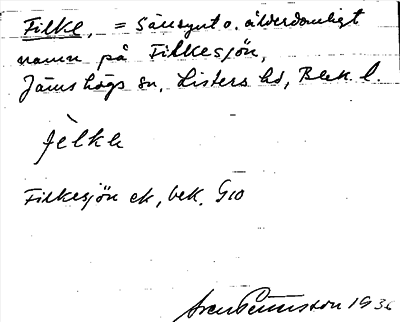 Filke, = Sänsynt o. ålderdomligt
namn på Filkesjön,
Jämshögs sn, Listers hd, Blek. l.
filke
Filkesjön ek, bek. G10
Sven Benson 1936